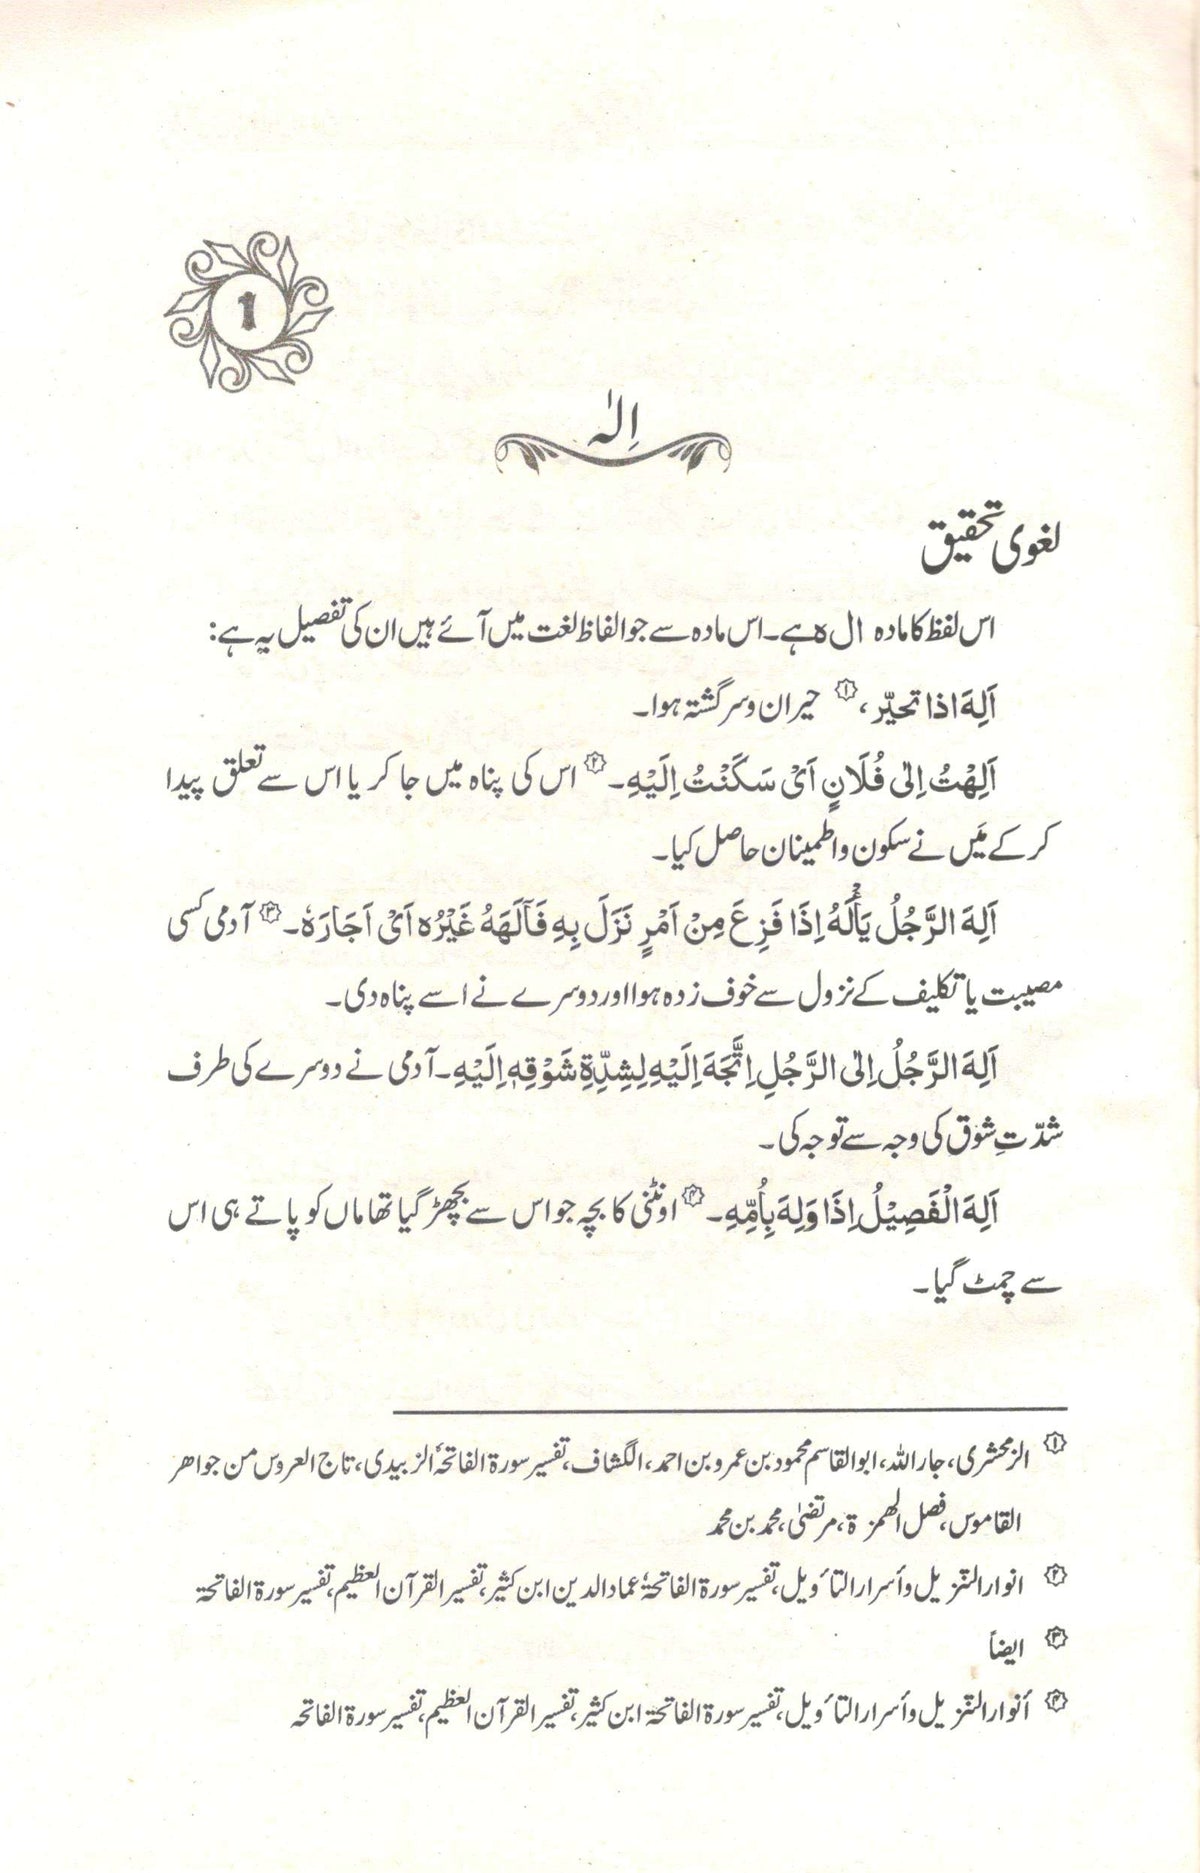 1
اِلٰہ
لغوی تحقیق
اس لفظ کا مادہ ال ہ ہے۔ اس مادہ سے جو الفاظ لغت میں آئے ہیں ان کی تفصیل یہ ہے:
اَلِهَ اذا تحیّر، ۱ حیران و سرگشتہ ہوا۔
اَلِهْتُ اِلٰی فُلَانٍ اَیْ سَکَنْتُ اِلَیْهِ۔ ۲ اس کی پناہ میں جا کر یا اس سے تعلق پیدا
کر کے مَیں نے سکون و اطمینان حاصل کیا۔
اَلِهَ الرَّجُلُ یَأْلَهُ اِذَا فَزِعَ مِنْ اَمْرٍ نَزَلَ بِهِ فَاٰلَهَهُ غَیْرُه اَیْ اَجَارَهٗ۔ ۳ آدمی کسی
مصیبت یا تکلیف کے نزول سے خوف زدہ ہوا اور دوسرے نے اسے پناہ دی۔
اَلِهَ الرَّجُلُ اِلٰی الرَّجُلِ اِتَّجَهَ اِلَیْهِ لِشِدِّةِ شَوْقِهٖ اِلَیْهِ۔ آدمی نے دوسرے کی طرف
شدّتِ شوق کی وجہ سے توجہ کی۔
اَلِهَ الْفَصِیْلُ اِذَا وَلِهَ بِاُمِّهِ۔ ۴ اونٹنی کا بچہ جو اس سے بچھڑ گیا تھا ماں کو پاتے ہی اس
سے چمٹ گیا۔
۱ الزمخشری، جار اللہ، ابو القاسم محمود بن عمرو بن احمد، الکشاف، تفسیر سورۃ الفاتحہ؛ الزبیدی، تاج العروس من جواھر
القاموس، فصل الھمزۃ، مرتضیٰ، محمد بن محمد
۲ انوار التنزیل وأسرار التأویل، تفسیر سورۃ الفاتحۃ؛ عماد الدین ابن کثیر، تفسیر القرآن العظیم، تفسیر سورۃ الفاتحۃ
۳ ایضاً
۴ أنوار التنزیل وأسرار التأویل، تفسیر سورۃ الفاتحۃ ابن کثیر، تفسیر القرآن العظیم، تفسیر سورۃ الفاتحہ